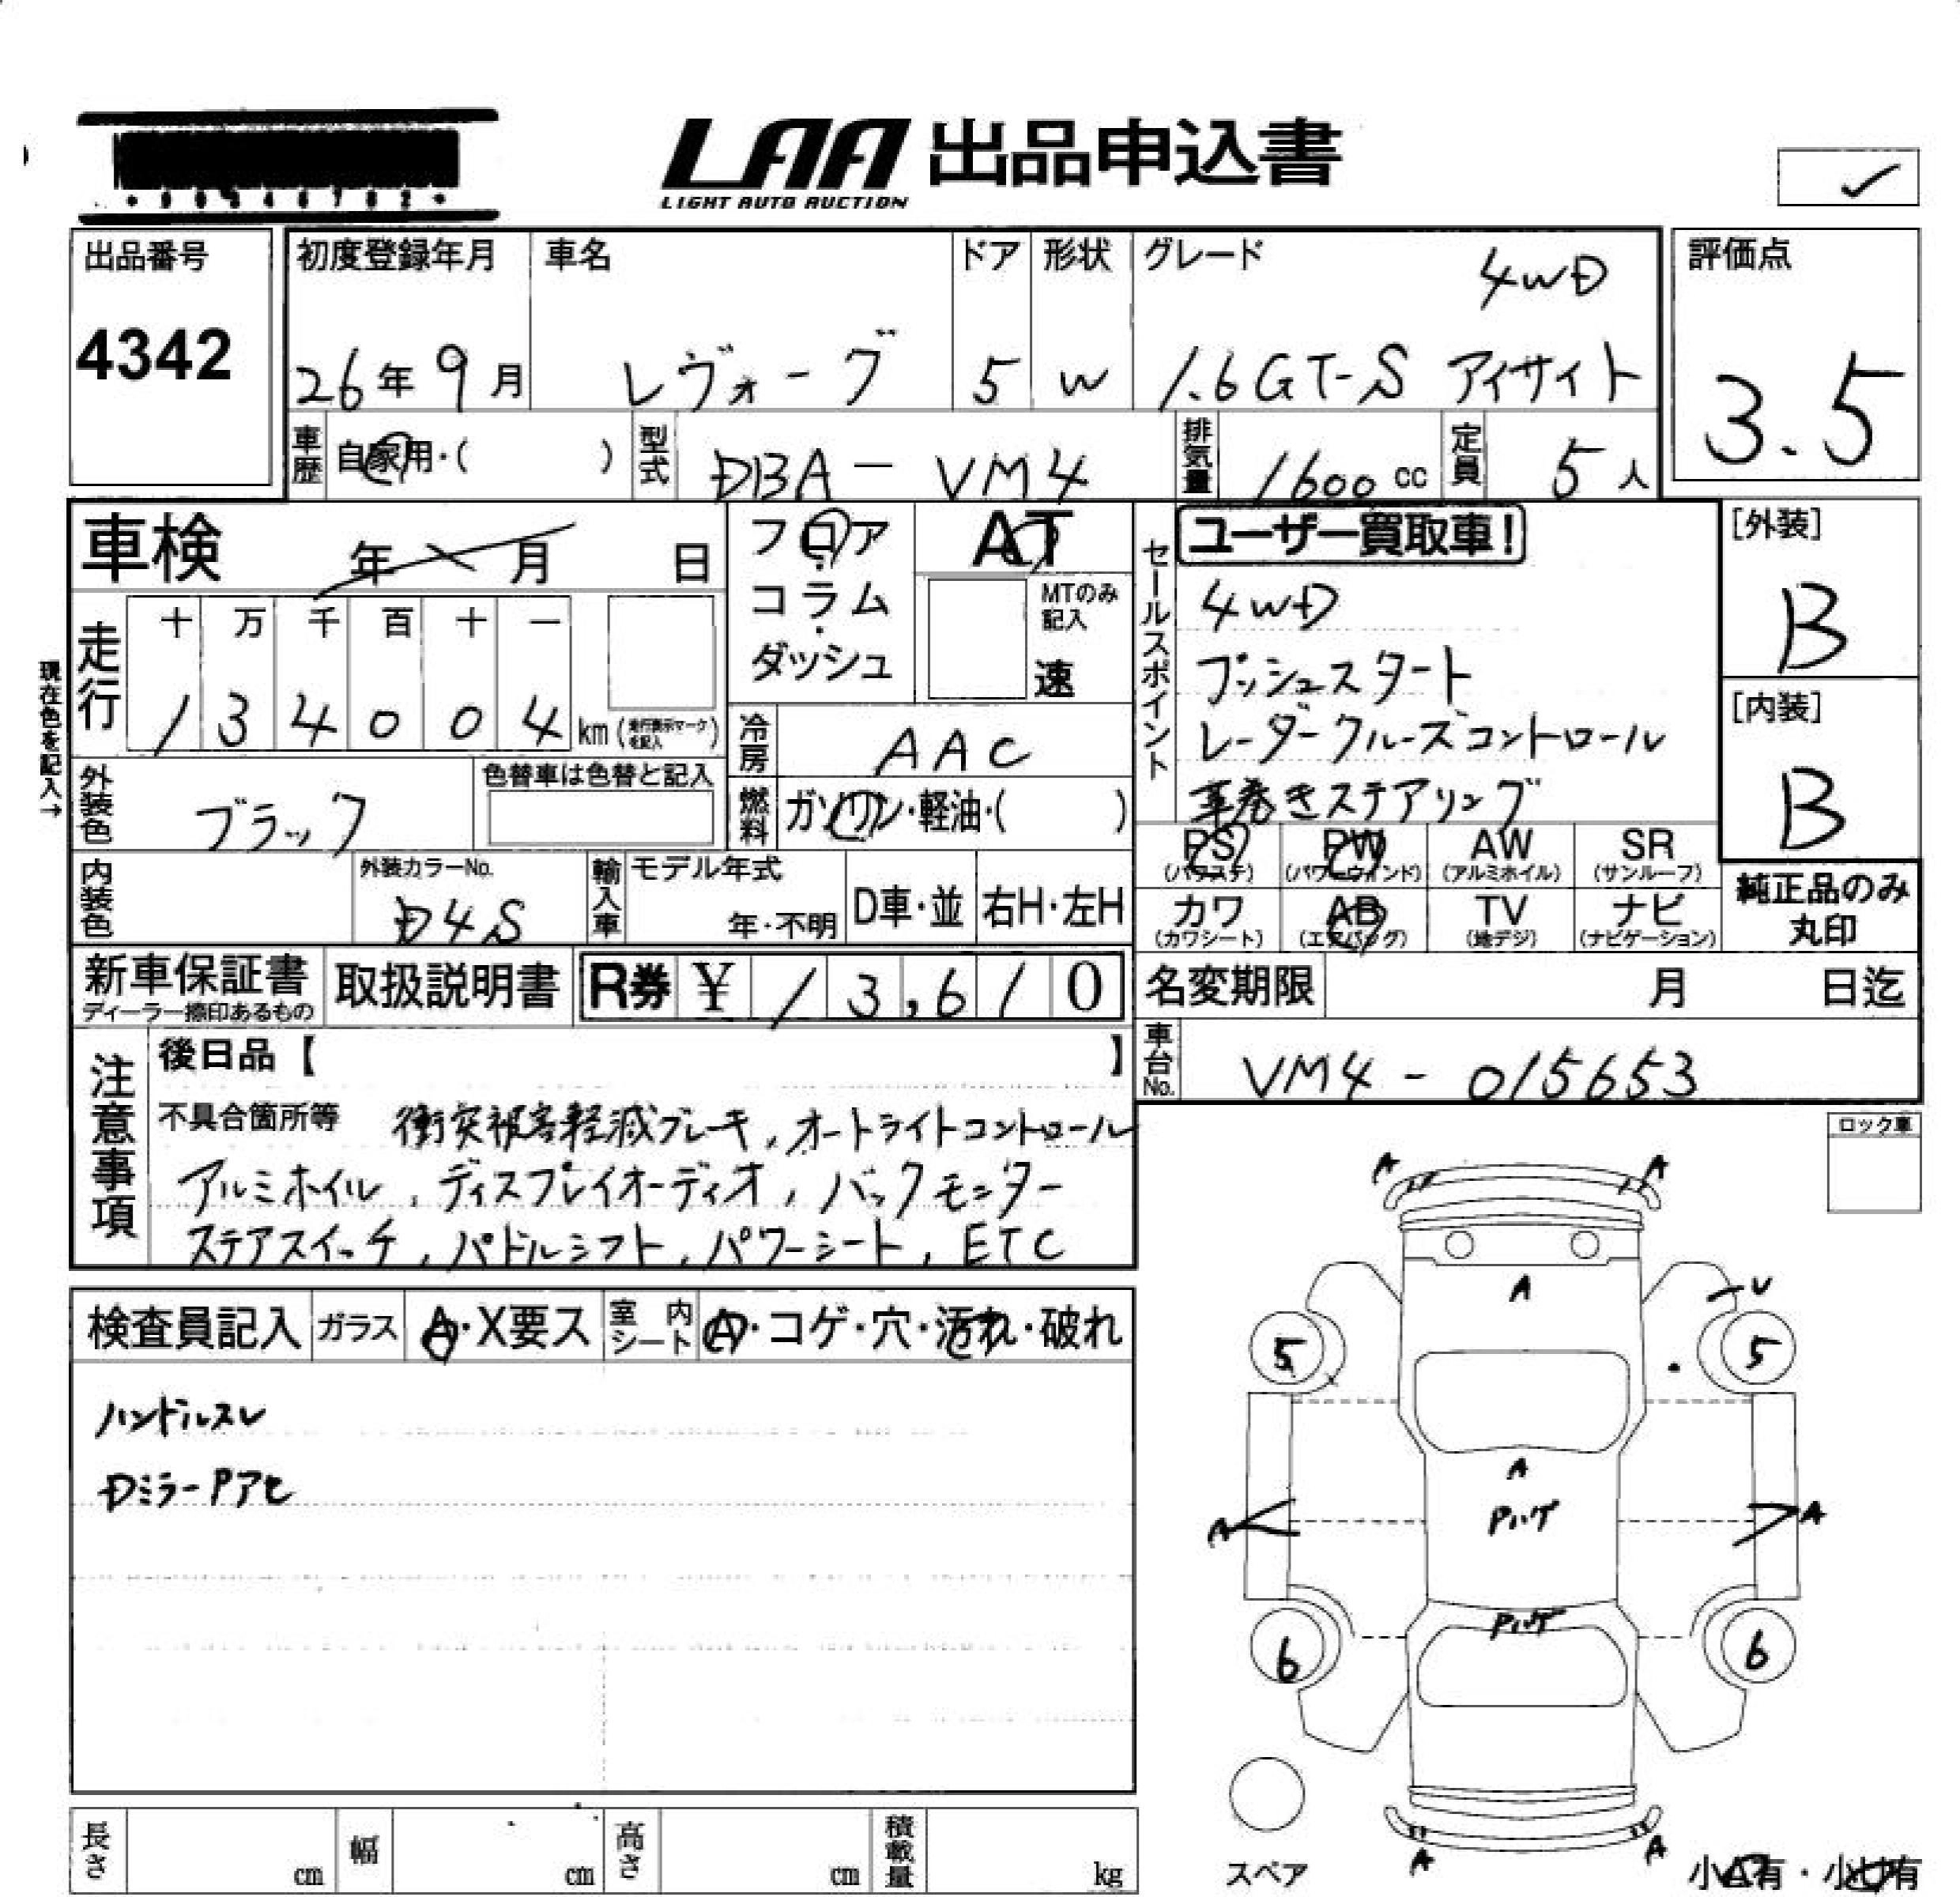 LAA 出品申込書
LIGHT AUTO AUCTION
出品番号
4342
初度登録年月
26年9月
車名
レヴォーグ
ドア
5
形状
W
グレード
4WD
1.6GT-S アイサイト
評価点
3.5
車歴 自家用・( )
型式 DBA-VM4
排気量 1600cc
定員 5人
車検 年 月 日
フロア・コラム・ダッシュ
AT
MTのみ記入
速
セールスポイント
ユーザー買取車!
4WD
プッシュスタート
レーダークルーズコントロール
革巻きステアリング
[外装]
B
[内装]
B
現在色を記入→
走行
十 万 千 百 十 一
1 3 4 0 0 4 km (走行表示マークを記入)
冷房 AAC
外装色 ブラック
色替車は色替と記入
燃料 ガソリン・軽油・( )
PS (パワステ)
PW (パワーウィンド)
AW (アルミホイル)
SR (サンルーフ)
カワ (カワシート)
AB (エアバッグ)
TV (地デジ)
ナビ (ナビゲーション)
純正品のみ丸印
内装色
外装カラーNo.
D4S
輸入車
モデル年式
年・不明
D車・並
右H・左H
新車保証書
ディーラー捺印あるもの
取扱説明書
R券 ¥ 13,610
名変期限 月 日迄
車台No. VM4-015653
注意事項
後日品【 】
不具合箇所等 衝突被害軽減ブレーキ, オートライトコントロール
アルミホイル, ディスプレイオーディオ, バックモニター
ステアスイッチ, パドルシフト, パワーシート, ETC
ロック車
検査員記入
ガラス A・X要ス
室内シート A・コゲ・穴・汚れ・破れ
ハンドルスレ
DミラーPアセ
A A
A
U
5 5
A
A Pハゲ A
Pハゲ
6 6
A A
スペア
小A有・小U有
長さ cm
幅 cm
高さ cm
積載量 kg